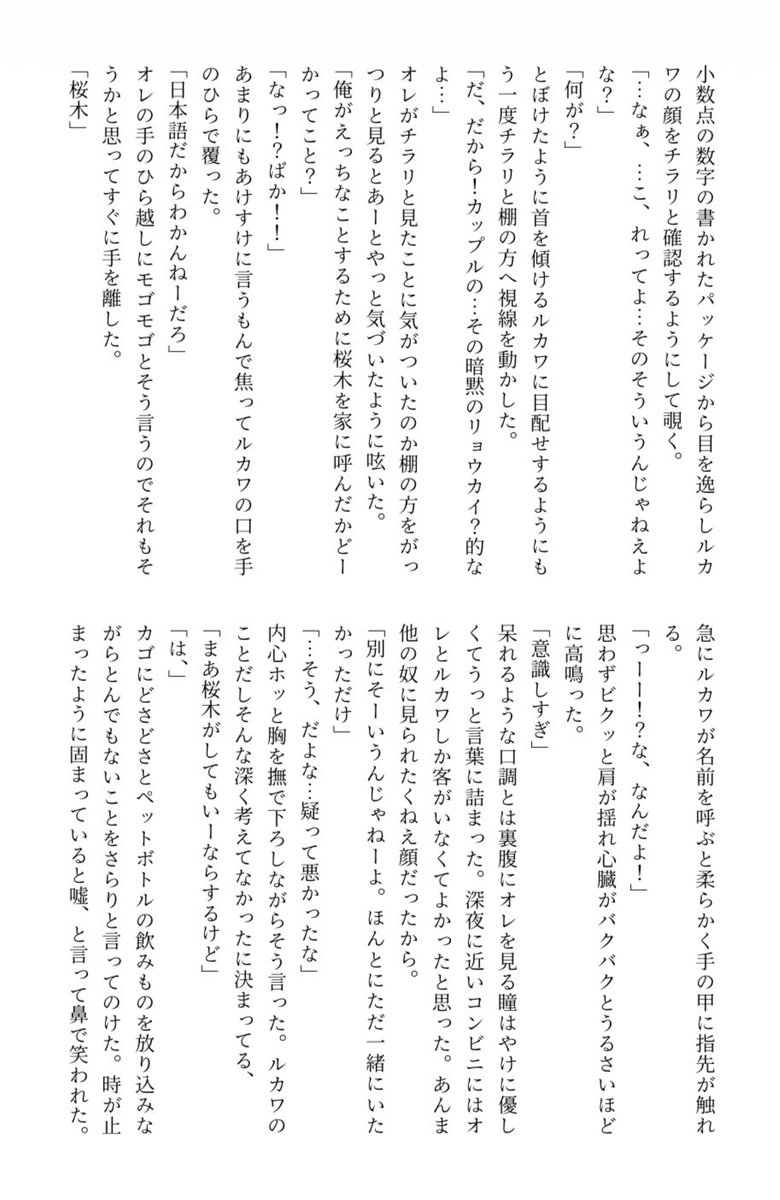 小数点の数字の書かれたパッケージから目を逸らしルカ
ワの顔をチラリと確認するようにして覗く。
「…なぁ、…こ、れってよ…そのそういうんじゃねえよ
な?」
「何が?」
とぼけたように首を傾けるルカワに目配せするようにも
う一度チラリと棚の方へ視線を動かした。
「だ、だから!カップルの…その暗黙のリョウカイ?的な
よ…」
オレがチラリと見たことに気がついたのか棚の方をがっ
つりと見るとあーとやっと気づいたように呟いた。
「俺がえっちなことするために桜木を家に呼んだかどー
かってこと?」
「なっ!?ばか!!」
あまりにもあけすけに言うもんで焦ってルカワの口を手
のひらで覆った。
「日本語だからわかんねーだろ」
オレの手のひら越しにモゴモゴとそう言うのでそれもそ
うかと思ってすぐに手を離した。
「桜木」
急にルカワが名前を呼ぶと柔らかく手の甲に指先が触れ
る。
「っーー!?な、なんだよ!」
思わずビクッと肩が揺れ心臓がバクバクとうるさいほど
に高鳴った。
「意識しすぎ」
呆れるような口調とは裏腹にオレを見る瞳はやけに優し
くてうっと言葉に詰まった。深夜に近いコンビニにはオ
レとルカワしか客がいなくてよかったと思った。あんま
他の奴に見られたくねえ顔だったから。
「別にそーいうんじゃねーよ。ほんとにただ一緒にいた
かっただけ」
「…そう、だよな…疑って悪かったな」
内心ホッと胸を撫で下ろしながらそう言った。ルカワの
ことだしそんな深く考えてなかったに決まってる、
「まあ桜木がしてもいーならするけど」
「は、」
カゴにどさどさとペットボトルの飲みものを放り込みな
がらとんでもないことをさらりと言ってのけた。時が止
まったように固まっていると嘘、と言って鼻で笑われた。